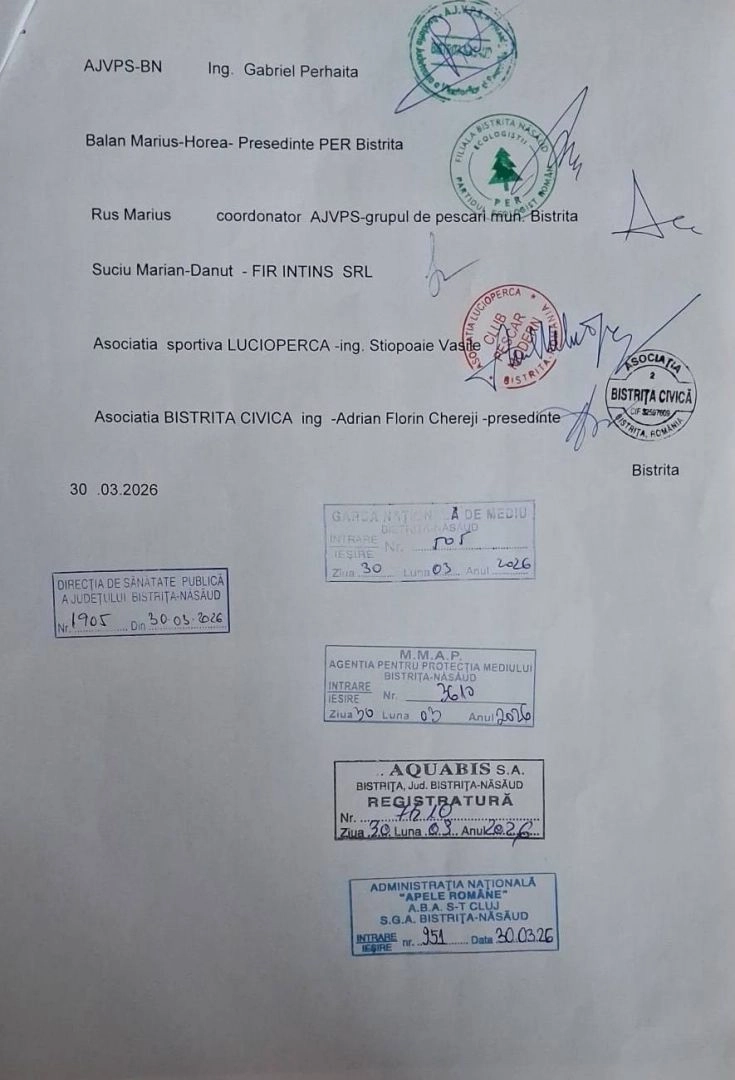 AJVPS-BN Ing. Gabriel Perhaita
Balan Marius-Horea- Presedinte PER Bistrita
FILIALA BISTRITA NĂSĂUD
ECOLOGIȘTII
PER
PARTIDUL ECOLOGIST ROMÂN
Rus Marius coordonator AJVPS-grupul de pescari mun. Bistrita
Suciu Marian-Danut - FIR INTINS SRL
ASOCIAȚIA LUCIOPERCA
CLUB
PESCAR
MODERN
BISTRIȚA-ROMÂNIA
Asociatia sportiva LUCIOPERCA -ing. Stiopoaie Vasile
ASOCIAȚIA
2
BISTRIȚA CIVICĂ
BISTRIȚA, ROMÂNIA
Asociatia BISTRITA CIVICA ing -Adrian Florin Chereji -presedinte
Bistrita
30 .03.2026
GARDA NAȚIONALĂ DE MEDIU
BISTRIȚA-NĂSĂUD
INTRARE
IEȘIRE
Nr. 505
Ziua 30 Luna 03 Anul 2026
DIRECȚIA DE SĂNĂTATE PUBLICĂ
A JUDEȚULUI BISTRIȚA-NĂSĂUD
Nr. 1905 Din 30.03.2026
M.M.A.P.
AGENTIA PENTRU PROTECȚIA MEDIULUI
BISTRIȚA-NĂSĂUD
INTRARE
IEȘIRE
Nr. 3610
Ziua 30 Luna 03 Anul 2026
AQUABIS S.A.
BISTRIȚA, Jud. BISTRIȚA-NĂSĂUD
REGISTRATURĂ
Nr.
Ziua 30 Luna 03 Anul 2026
ADMINISTRAȚIA NAȚIONALĂ
"APELE ROMÂNE"
A.B.A. S-T CLUJ
S.G.A. BISTRIȚA-NĂSĂUD
INTRARE
IEȘIRE
nr. 951 Data 30.03.26